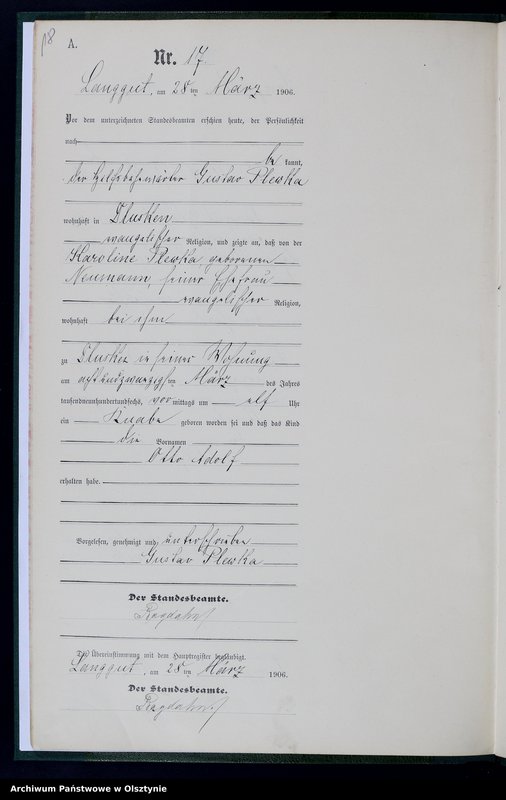 18
A.
Nr. 17.
Langgut, am 28ten März 1906.
Vor dem unterzeichneten Standesbeamten erschien heute, der Persönlichkeit
nach
be kannt,
der Gustav Plewka
wohnhaft in Dlusken
evangelischer Religion, und zeigte an, daß von der
Karoline Plewka, geborenen
Neumann, seiner Ehefrau
evangelischer Religion,
wohnhaft bei ihm
zu Dlusken in seiner Wohnung
am achtundzwanzigsten März des Jahres
tausendneunhundertundsechs, vor mittags um elf Uhr
ein Knabe geboren worden sei und daß das Kind
die Vornamen
Otto Adolf
erhalten habe.
Vorgelesen, genehmigt und unterschrieben
Gustav Plewka
Der Standesbeamte.
Die Übereinstimmung mit dem Hauptregister beglaubigt.
Langgut, am 28ten März 1906.
Der Standesbeamte.
Archiwum Państwowe w Olsztynie